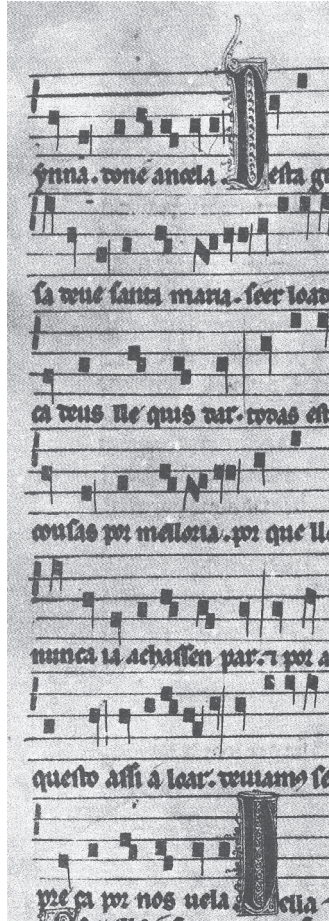 ynna. tone ancela. D esta gr
sa deue santa maria. seer load
ca deus lle quis dar. todas est
cousas por melloria. por que lle
nunca ia achassen par. ⁊ por a
questo assi a loar. deuiamꝯ se
pre ca por nos uela I ella